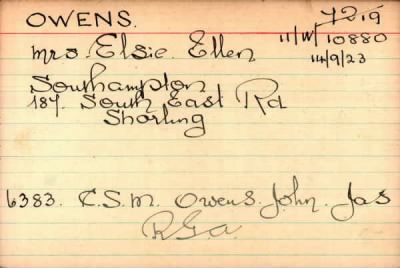 OWENS.
7219
11/W/10880
14/9/23
Mrs. Elsie Ellen
Southampton
187. South East Rd
Sholing
6383. C.S.M. Owens. John. Jas
R.G.A.